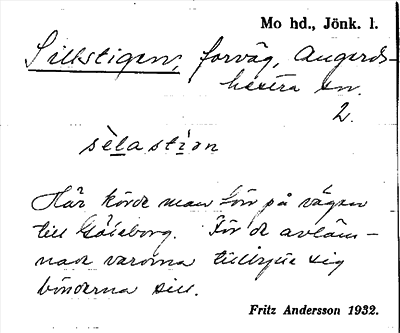 Mo hd., Jönk. l.
Sillstigen, forväg, Angerds-
hestra sn.
2.
sèlastìgn
Här körde man förr på vägen
till Göteborg. För de avläm-
nade varorna tillbytte sig
bönderna sill.
Fritz Andersson 1932.